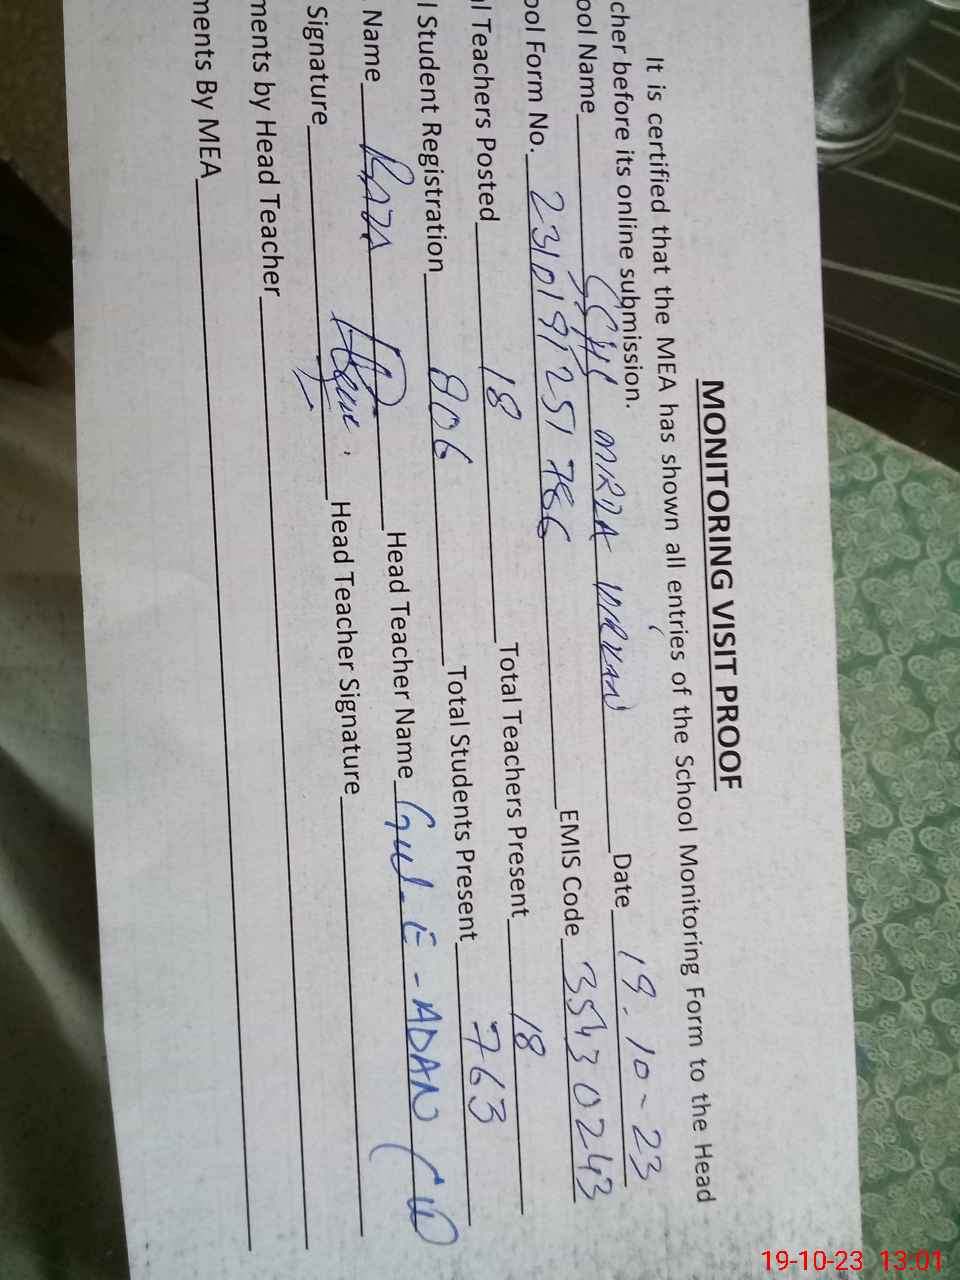 MONITORING VISIT PROOF
It is certified that the MEA has shown all entries of the School Monitoring Form to the Head
cher before its online submission.
ool Name Date 19.10-23
ool Form No. 2310191251786 EMIS Code 35430243
l Teachers Posted 18 Total Teachers Present 18
l Student Registration 806 Total Students Present 763
Name RAZA Head Teacher Name Gul-E-ADAN
Signature Head Teacher Signature
ments by Head Teacher
ments By MEA
19-10-23 13:01